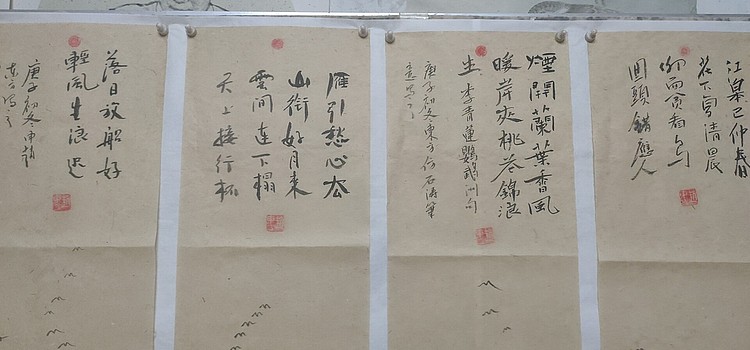 江皋已仲春
花下复清晨
仰面貪看鳥
回頭錯應人
煙開蘭葉香風
暖岸夾桃花錦浪
生 李青蓮鸚鵡洲句
庚子初冬東方仿石濤筆
意寫之
雁引愁心去
山銜好月來
雲間連下榻
天上接行杯
落日放船好
輕風生浪遲
庚子初冬
東方寫之